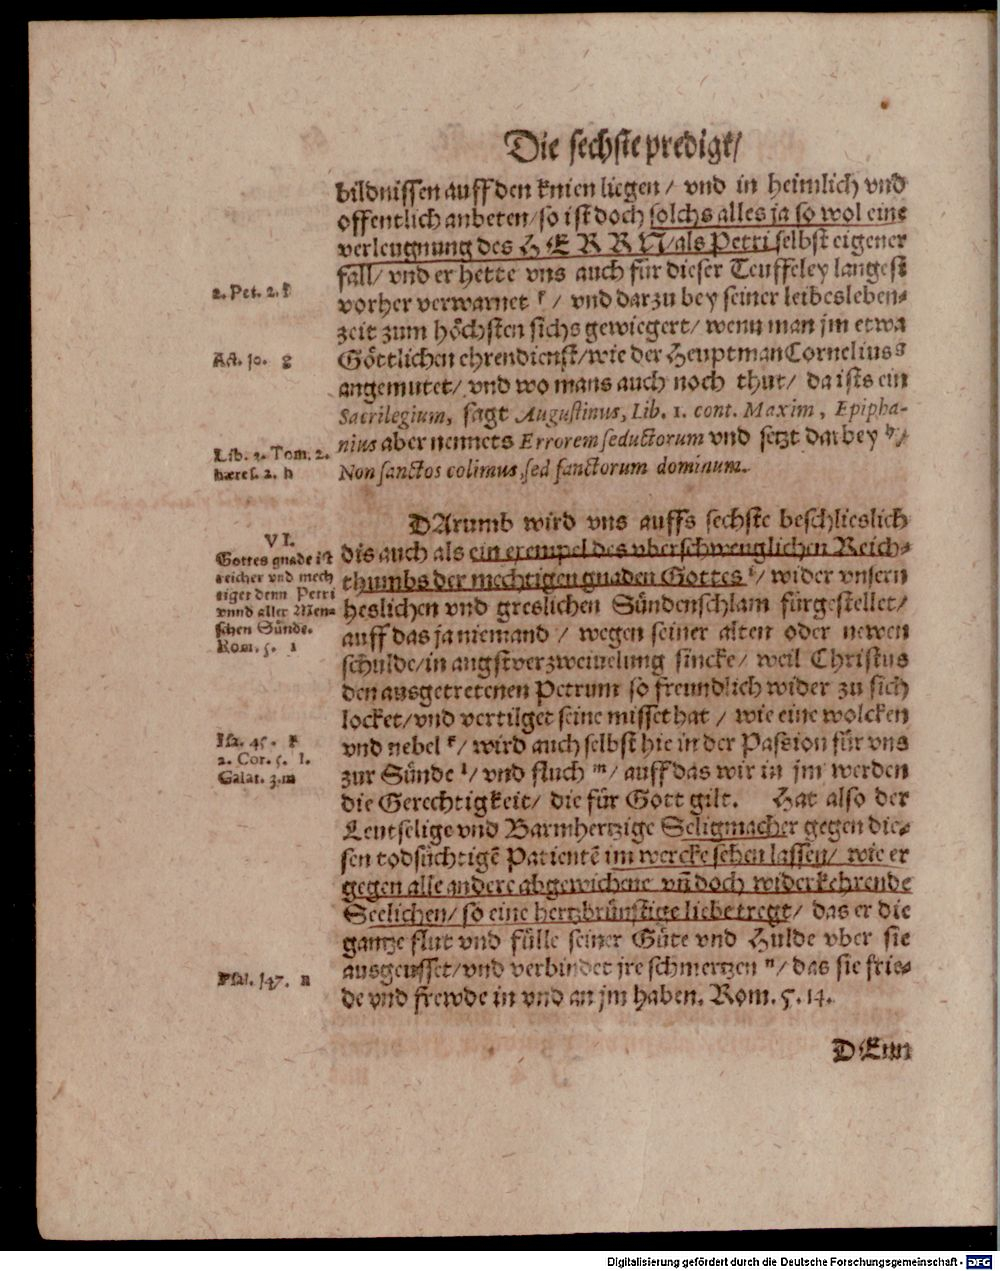 Die sechste predigt/
bildnissen auff den knien liegen / vnd in heimlich vnd
offentlich anbeten/so ist doch solchs alles ja so wol eine
verleugnung des HERRN/als Petri selbst eigener
fall/ vnd er hette vns auch für dieser Teuffeley langest
2. Pet. 2. f
vorher verwarnet f / vnd darzu bey seiner leibesleben-
zeit zum höchsten sichs gewiegert/ wenn man jm etwa
Act. 10. g
Göttlichen ehrendienst/wie der Heuptman Cornelius g
angemutet/ vnd wo mans auch noch thut/ da ists ein
Sacrilegium, sagt Augustinus, Lib. 1. cont. Maxim, Epipha-
nius aber nennets Errorem seductorum vnd setzt darbey h/
Lib. 2. Tom. 2.
hæres. 2. h
Non sanctos colimus, sed sanctorum dominum.
DArumb wird vns auffs sechste beschlieslich
VI.
Gottes gnade ist
reicher vnd mech
tiger denn Petri
vnnd aller Men-
schen Sünde.
Rom. 5. i
dis auch als ein exempel des vberschwenglichen Reich-
thumbs der mechtigen gnaden Gottes i/ wider vnsern
heslichen vnd greslichen Sündenschlam fürgestellet/
auff das ja niemand / wegen seiner alten oder newen
schulde/in angstverzweiuelung sincke/ weil Christus
den ausgetretenen Petrum so freundlich wider zu sich
locket/vnd vertilget seine missethat / wie eine wolcken
Isa. 45. k
2. Cor. 5. l.
Galat. 3. m
vnd nebel k/ wird auch selbst hie in der Passion für vns
zur Sünde l/ vnd fluch m/ auff das wir in jm werden
die Gerechtigkeit/ die für Gott gilt. Hat also der
Leutselige vnd Barmhertzige Seligmacher gegen die-
sen todsüchtigē Patientē im wercke sehen lassen/ wie er
gegen alle andere abgewichene vñ doch widerkehrende
Seelichen/ so eine hertzbrünstige liebe tregt/ das er die
gantze flut vnd fülle seiner Güte vnd Hulde vber sie
Psal. 147. n
ausgeusset/vnd verbindet jre schmertzen n/ das sie frie-
de vnd frewde in vnd an jm haben. Rom. 5. 14.
DEnn
Digitalisierung gefördert durch die Deutsche Forschungsgemeinschaft - DFG